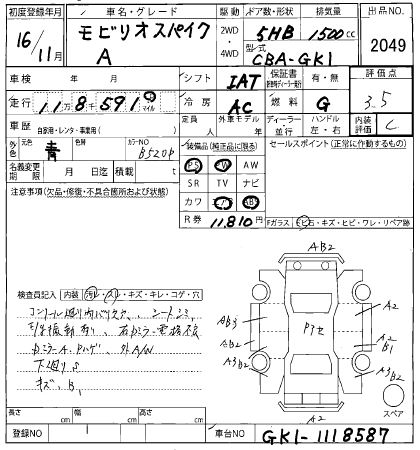 初度登録年月 車名・グレード 駆動 ドア数・形状 排気量 出品NO
16/11月 モビリオスパイク 2WD・4WD 5HB 1500cc 2049
A 型式 CBA-GK1
車検 年 月 シフト IAT 保証書 有・無 評価点
走行 11万8千591 マイル 冷房 AC 燃料 G 3.5
車歴 自家用・レンタ・事業用( ) 定員 人 外車モデル 年 ディーラー・並行 ハンドル 左・右 内装評価 C
外色 元色 青 色替 カラーNO B520P 装備品(純正品に限る) セールスポイント(正常に作動するもの)
名義変更期限 月 日迄 積載 t PS PW AW
注意事項(欠品・修復・不具合箇所および状態) SR TV ナビ
カワ エアB AB
R券 11,810円 Fガラス トビ石・キズ・ヒビ・ワレ・リペア跡
AB2
検査員記入 内装 汚レ・スレ・キズ・キレ・コゲ・穴
シートシミ
AB3 Pアセ A2
AB2 A2 B1
カミラーA、外A/W
下廻りS
キズ、B,
A3B2 A3B2
A2 スペア
長さ cm 幅 cm 高さ cm
登録NO 車台NO GK1-1118587